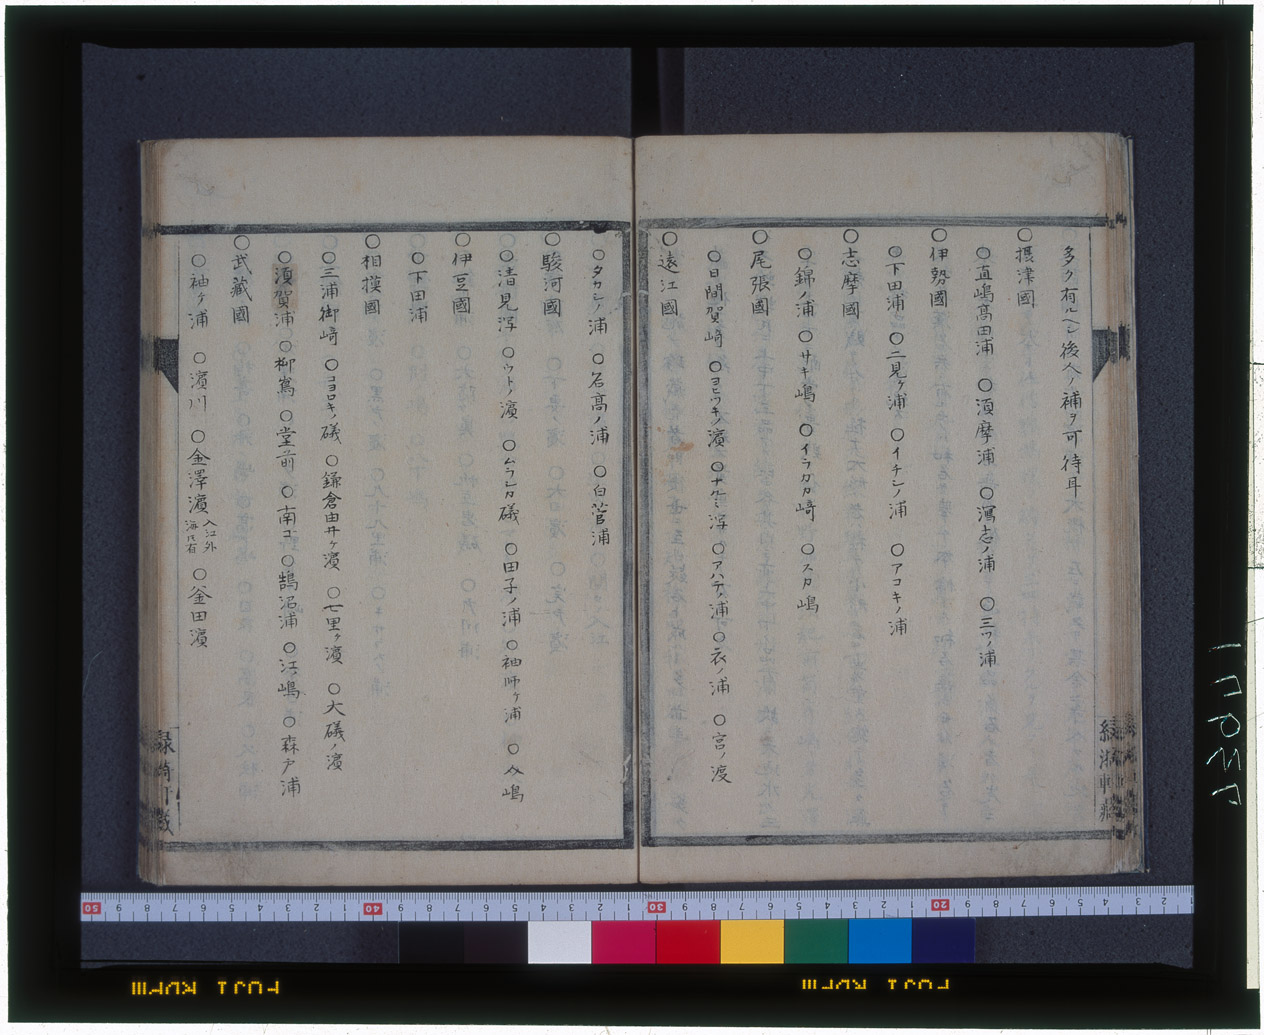 多ク有ルヘシ後人ノ補ヲ可待耳
○摂津國
○直嶋髙田浦 ○須摩浦 ○瀉志ノ浦 ○三ツノ浦
○伊勢國
○下田浦 ○二見ヶ浦 ○イチシノ浦 ○アコキノ浦
○志摩國
○錦ノ浦 ○サキ嶋 ○イラカカ﨑 ○スカ嶋
○尾張國
○日間賀﨑 ○ヨヒツキノ濵 ○ナクミ浮 ○アハテノ浦 ○衣ノ浦 ○宮ノ渡
○遠江國
○タカシノ浦 ○名髙ノ浦 ○白菅浦
○駿河國
○清見浮 ○ウトノ濵 ○ムラシカ礒 ○田子ノ浦 ○袖師ヶ浦 ○嶋
○伊豆國
○下田浦
○相摸國
○三浦御﨑 ○コヨロキノ礒 ○鎌倉由井ヶ濵 ○七里ヶ濵 ○大礒ノ濵
○須賀浦 ○柳嶌 ○堂前 ○南コ ○鵠沼浦 ○江ノ嶋 ○森戸浦
○武藏國
○袖ヶ浦 ○濵川 ○金澤濵 入江外海氏有 ○釜田濵